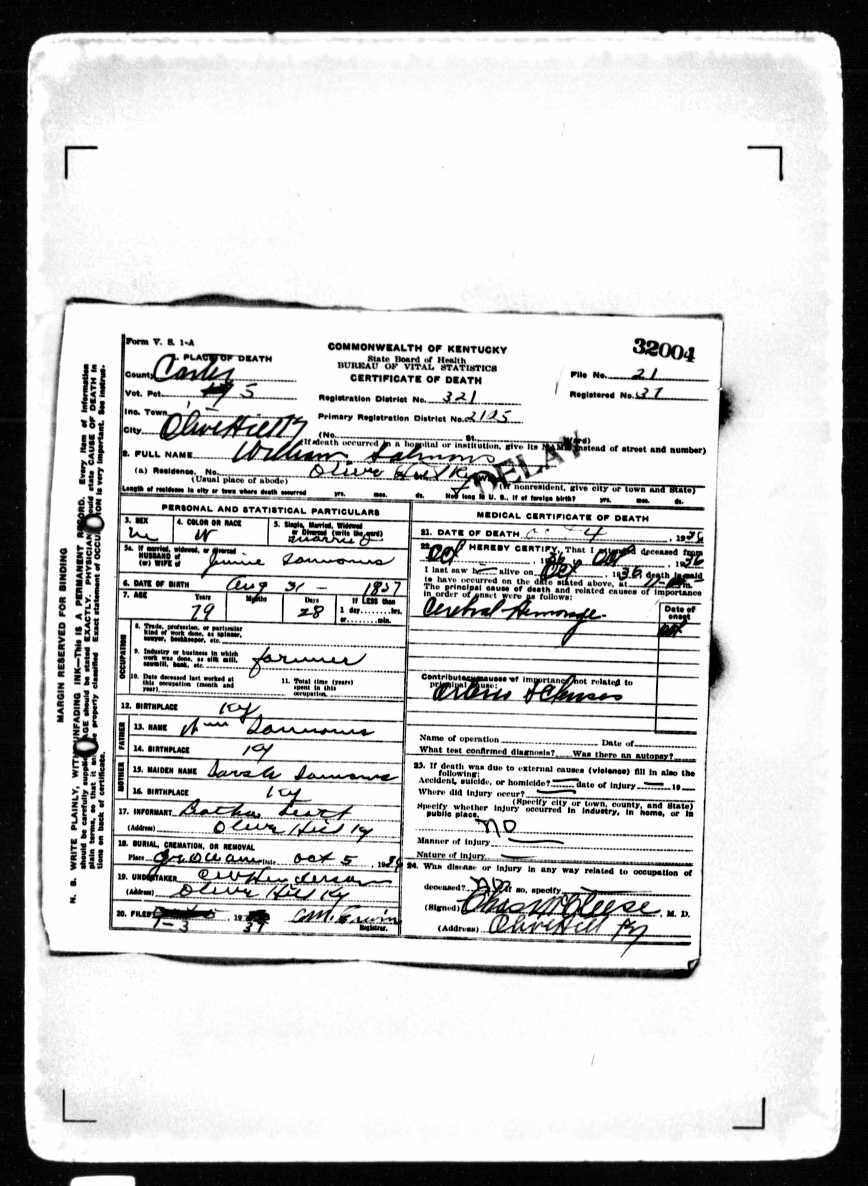 Form V. S. 1-A
COMMONWEALTH OF KENTUCKY
State Board of Health
BUREAU OF VITAL STATISTICS
CERTIFICATE OF DEATH
32004
File No. 21
Registered No. 37
1. PLACE OF DEATH
County Carter
Vot. Pct. 5
Inc. Town
City Olive Hill Ky
Registration District No. 321
Primary Registration District No. 2125
(No. St. Ward)
(If death occurred in a hospital or institution, give its NAME instead of street and number)
2. FULL NAME William Salmons
(a) Residence. No. Olive Hill Ky
(Usual place of abode) (If nonresident, give city or town and State)
DELAY
Length of residence in city or town where death occurred yrs. mos. ds. How long in U. S., if of foreign birth? yrs. mos. ds.
PERSONAL AND STATISTICAL PARTICULARS
3. SEX M
4. COLOR OR RACE W
5. Single, Married, Widowed or Divorced (write the word)
married
5a. If married, widowed, or divorced
HUSBAND of
(or) WIFE of Sammons
6. DATE OF BIRTH Aug 31 - 1857
7. AGE Years Months Days If LESS than
79 28 1 day........hrs.
or........min.
OCCUPATION
8. Trade, profession, or particular
kind of work done, as spinner,
sawyer, bookkeeper, etc.
9. Industry or business in which
work was done, as silk mill,
sawmill, bank, etc. farmer
10. Date deceased last worked at
this occupation (month and
year)
11. Total time (years)
spent in this
occupation.
12. BIRTHPLACE Ky
FATHER
13. NAME Wm Sammons
14. BIRTHPLACE Ky
MOTHER
15. MAIDEN NAME Sarah Sammons
16. BIRTHPLACE Ky
17. INFORMANT
(Address) Olive Hill Ky
18. BURIAL, CREMATION, OR REMOVAL
Place Date Oct 5, 1936
19. UNDERTAKER Henderson
(Address) Olive Hill Ky
20. FILED 1-3 37 Erwin
Registrar.
MEDICAL CERTIFICATE OF DEATH
21. DATE OF DEATH Oct 4, 1936
22. I HEREBY CERTIFY, That I attended deceased from
Oct 1936 Oct, 1936
I last saw h alive on Oct, 1936, death is said
to have occurred on the date stated above, at m.
The principal cause of death and related causes of importance
in order of onset were as follows:
Date of
onset
Cerebral Hemorage
Contributory causes of importance not related to
principal cause:
Name of operation Date of
What test confirmed diagnosis? Was there an autopsy?
23. If death was due to external causes (violence) fill in also the
following:
Accident, suicide, or homicide? date of injury 19
Where did injury occur?
(Specify city or town, county, and State)
Specify whether injury occurred in industry, in home, or in
public place. no
Manner of injury
Nature of injury
24. Was disease or injury in any way related to occupation of
deceased? no If so, specify
(Signed) , M. D.
(Address) Olive Hill Ky
MARGIN RESERVED FOR BINDING
N. B. WRITE PLAINLY, WITH UNFADING INK—THIS IS A PERMANENT RECORD. Every item of information
should be carefully supplied. AGE should be stated EXACTLY. PHYSICIANS should state CAUSE OF DEATH in
plain terms, so that it may be properly classified. Exact statement of OCCUPATION is very important. See instruc-
tions on back of certificate.